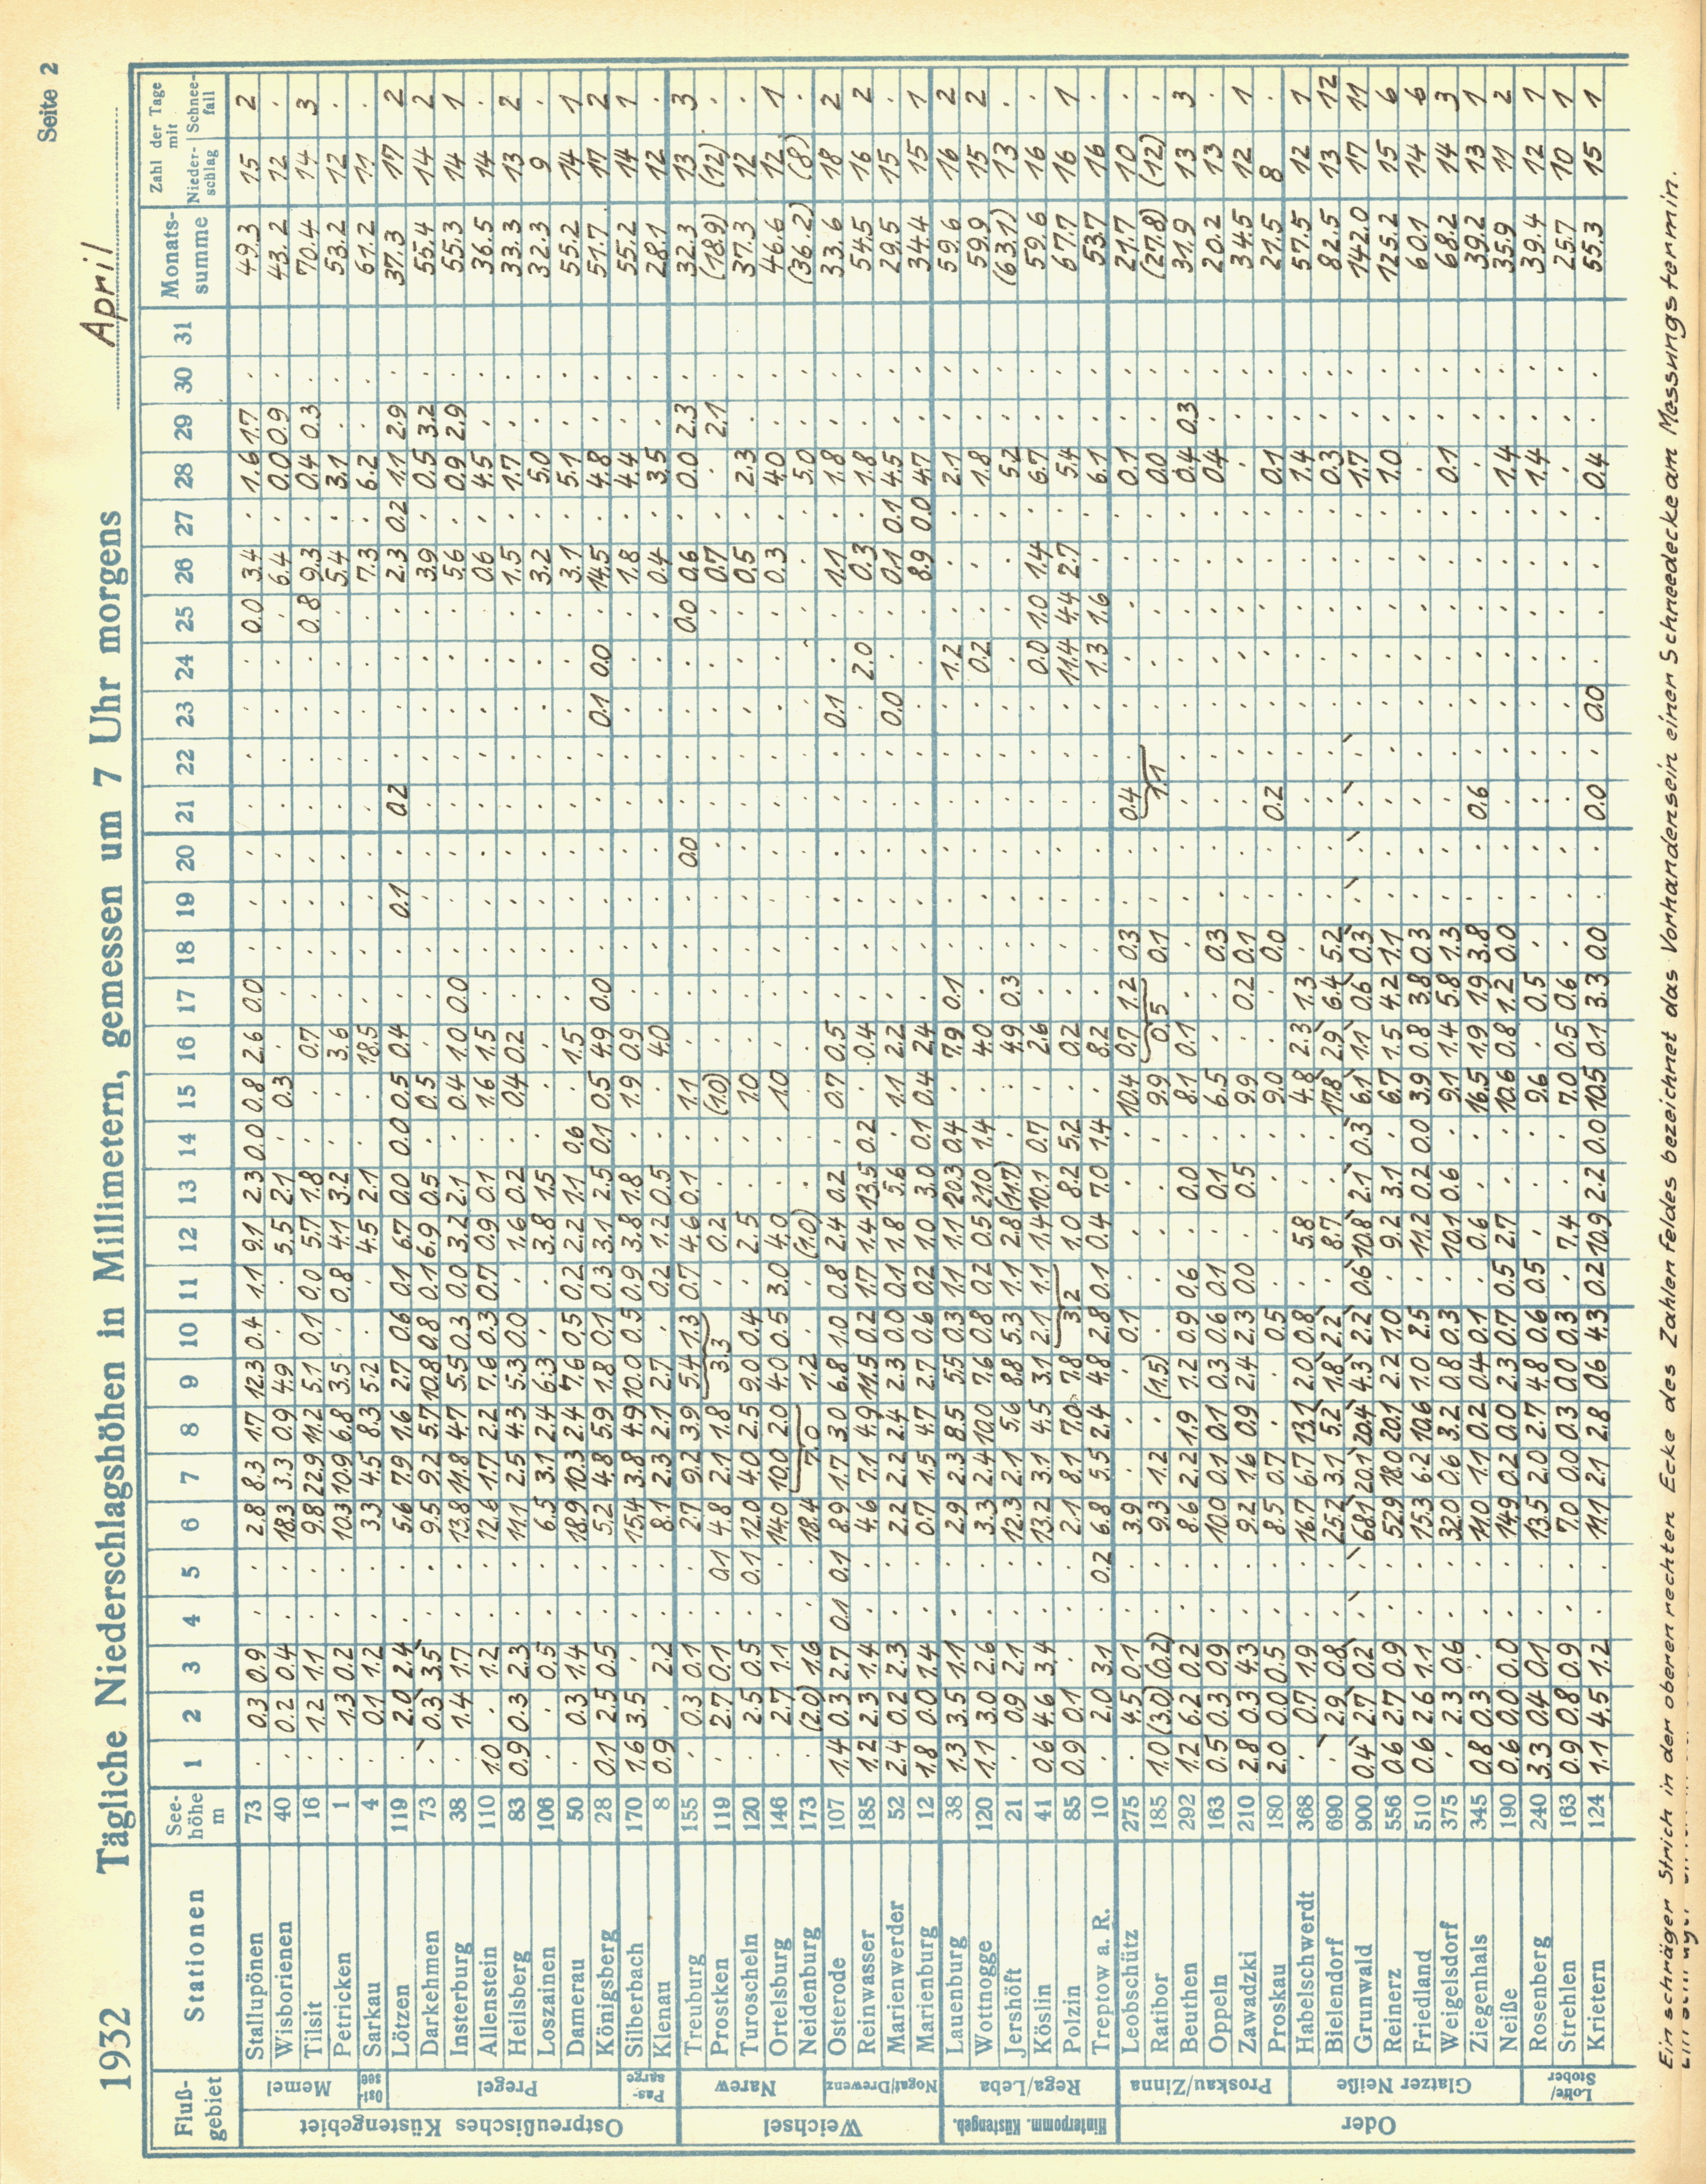 Seite 2
1932 Tägliche Niederschlagshöhen in Millimetern, gemessen um 7 Uhr morgens April
Fluß-gebiet Stationen See-höhe m 1 2 3 4 5 6 7 8 9 10 11 12 13 14 15 16 17 18 19 20 21 22 23 24 25 26 27 28 29 30 31 Monats-summe Zahl der Tage mit Nieder-schlag Schnee-fall
Ostpreußisches Küstengebiet
Memel
Stallupönen 73 . 0.3 0.9 . . 2.8 8.3 1.7 12.3 0.4 1.1 9.1 2.3 0.0 0.8 2.6 0.0 . . . . . . . 0.0 3.4 . 1.6 1.7 . 49.3 15 2
Wisborienen 40 . 0.2 0.4 . . 18.3 3.3 0.9 4.9 . . 5.5 2.1 . 0.3 . . . . . . . . . . 6.4 . 0.0 0.9 . 43.2 12 .
Tilsit 16 . 1.2 1.1 . . 9.8 22.9 11.2 5.1 0.1 0.0 5.7 1.8 . . 0.7 . . . . . . . . 0.8 9.3 . 0.4 0.3 . 70.4 14 3
Petricken 1 . 1.3 0.2 . . 10.3 10.9 6.8 3.5 . 0.8 4.1 3.2 . . 3.6 . . . . . . . . . 5.4 . 3.1 . . 53.2 12 .
Ost-see
Sarkau 4 . 0.1 1.2 . . 3.3 4.5 8.3 5.2 . . 4.5 2.1 . . 18.5 . . . . . . . . . 7.3 . 6.2 . . 61.2 11 .
Pregel
Lötzen 119 . 2.0 2.4 . . 5.6 7.9 1.6 2.7 0.6 0.1 6.7 0.0 0.0 0.5 0.4 . . 0.1 . 0.2 . . . . 2.3 0.2 1.1 2.9 . 37.3 17 2
Darkehmen 73 . 0.3 3.5 . . 9.5 9.2 5.7 10.8 0.8 0.1 6.9 0.5 . 0.5 . . . . . . . . . . 3.9 . 0.5 3.2 . 55.4 14 2
Insterburg 38 . 1.4 1.7 . . 13.8 11.8 4.7 5.5 0.3 0.0 3.2 2.1 . 0.4 1.0 0.0 . . . . . . . . 5.6 . 0.9 2.9 . 55.3 14 1
Allenstein 110 1.0 . 1.2 . . 12.6 1.7 2.2 7.6 0.3 0.7 0.9 0.1 . 1.6 1.5 . . . . . . . . . 0.6 . 4.5 . . 36.5 14 .
Heilsberg 83 0.9 0.3 2.3 . . 11.1 2.5 4.3 5.3 0.0 . 1.6 0.2 . 0.4 0.2 . . . . . . . . . 1.5 . 1.7 . . 33.3 13 2
Loszainen 106 . . 0.5 . . 6.5 3.1 2.4 6.3 . . 3.8 1.5 . . . . . . . . . . . . 3.2 . 5.0 . . 32.3 9 .
Damerau 50 . 0.3 1.4 . . 18.9 10.3 2.4 7.6 0.5 0.2 2.2 1.1 0.6 . 1.5 . . . . . . . . . 3.1 . 5.1 . . 55.2 14 1
Königsberg 28 0.1 2.5 0.5 . . 5.2 4.8 5.9 1.8 0.1 0.3 3.1 2.5 0.1 0.5 4.9 0.0 . . . . . 0.1 0.0 . 14.5 . 4.8 . . 51.7 17 2
Pas-sarge
Silberbach 170 1.6 3.5 . . . 15.4 3.8 4.9 10.0 0.5 0.9 3.8 1.8 . 1.9 0.9 . . . . . . . . . 1.8 . 4.4 . . 55.2 14 1
Klenau 8 0.9 . 2.2 . . 8.1 2.3 2.1 2.7 . 0.2 1.2 0.5 . . 4.0 . . . . . . . . . 0.4 . 3.5 . . 28.1 12 .
Weichsel
Narew
Treuburg 155 . 0.3 0.1 . . 2.7 9.2 3.9 5.4 1.3 0.7 4.6 0.1 . 1.1 . . . . 0.0 . . . . 0.0 0.6 . 0.0 2.3 . 32.3 13 3
Prostken 119 . 2.7 0.1 . 0.1 4.8 2.1 1.8 3.3 . 0.2 . . (1.0) . . . . . . . . . . 0.7 . . 2.1 . (18.9) (12) .
Turoscheln 120 . 2.5 0.5 . 0.1 12.0 4.0 2.5 9.0 0.4 . 2.5 . . 1.0 . . . . . . . . . . 0.5 . 2.3 . . 37.3 12 .
Ortelsburg 146 . 2.7 1.1 . . 14.0 10.0 2.0 4.0 0.5 3.0 4.0 . . 1.0 . . . . . . . . . . 0.3 . 4.0 . . 46.6 12 1
Neidenburg 173 . (2.0) 1.6 . . 18.4 7.0 1.2 . . (1.0) . . . . . . . . . . . . . . . 5.0 . . (36.2) (8) .
Nogat/Drewenz
Osterode 107 1.4 0.3 2.7 0.1 0.1 8.9 1.7 3.0 6.8 1.0 0.8 2.4 0.2 . 0.7 0.5 . . . . . . 0.1 . . 1.1 . 1.8 . . 33.6 18 2
Reinwasser 185 1.2 2.3 1.4 . . 4.6 7.1 4.9 11.5 0.2 1.7 1.4 13.5 0.2 . 0.4 . . . . . . . 2.0 . 0.3 . 1.8 . . 54.5 16 2
Marienwerder 52 2.4 0.2 2.3 . . 2.2 2.2 2.4 2.3 0.0 0.1 1.8 5.6 . 1.1 2.2 . . . . . . 0.0 . . 0.1 0.1 4.5 . . 29.5 15 .
Marienburg 12 1.8 0.0 1.4 . . 0.7 1.5 4.7 2.7 0.6 0.2 1.0 3.0 0.1 0.4 2.4 . . . . . . . . . 8.9 0.0 4.7 . . 34.4 15 1
Hinterpomm. Küstengeb.
Rega/Leba
Lauenburg 38 1.3 3.5 1.1 . . 2.9 2.3 8.5 5.5 0.3 1.1 1.1 20.3 0.4 . 7.9 0.1 . . . . . . 1.2 . . . 2.1 . . 59.6 16 2
Wottnogge 120 1.1 3.0 2.6 . . 3.3 2.4 10.0 7.6 0.8 0.2 0.5 21.0 1.4 . 4.0 . . . . . . . 0.2 . . . 1.8 . . 59.9 15 2
Jershöft 21 . 0.9 2.1 . . 12.3 2.1 5.6 8.8 5.3 1.1 2.8 (11.7) . . 4.9 0.3 . . . . . . . . . . 5.2 . . (63.1) 13 .
Köslin 41 0.6 4.6 3.4 . . 13.2 3.1 4.5 3.1 2.1 1.1 1.4 10.1 0.7 . 2.6 . . . . . . . 0.0 1.0 1.4 . 6.7 . . 59.6 16 .
Polzin 85 0.9 0.1 . . . 2.1 8.1 7.0 7.8 3.2 1.0 8.2 5.2 . 0.2 . . . . . . . 11.4 4.4 2.7 . 5.4 . . 67.7 16 1
Treptow a. R. 10 . 2.0 3.1 . 0.2 6.8 5.5 2.4 4.8 2.8 0.1 0.4 7.0 1.4 . 8.2 . . . . . . . 1.3 1.6 . . 6.1 . . 53.7 16 .
Oder
Proskau/Zinna
Leobschütz 275 . 4.5 0.1 . . 3.9 . . . 0.1 . . . . 10.4 0.7 1.2 0.3 . . 0.4 . . . . . . 0.1 . . 21.7 10 .
Ratibor 185 1.0 (3.0) (0.2) . . 9.3 1.2 . (1.5) . . . . . 9.9 0.5 0.1 . . 1.1 . . . . . 0.0 . . (27.8) (12) .
Beuthen 292 1.2 6.2 0.2 . . 8.6 2.2 1.9 1.2 0.9 0.6 . 0.0 . 8.1 0.1 . . . . . . . . . . . 0.4 0.3 . 31.9 13 3
Oppeln 163 0.5 0.3 0.9 . . 10.0 0.1 0.1 0.3 0.6 0.1 . 0.1 . 6.5 . . 0.3 . . . . . . . . . 0.4 . . 20.2 13 .
Zawadzki 210 2.8 0.3 4.3 . . 9.2 1.6 0.9 2.4 2.3 0.0 . 0.5 . 9.9 . 0.2 0.1 . . . . . . . . . . . . 34.5 12 1
Proskau 180 2.0 0.0 0.5 . . 8.5 0.7 . . 0.5 . . . . 9.0 . . 0.0 . . 0.2 . . . . . . 0.1 . . 21.5 8 .
Glatzer Neiße
Habelschwerdt 368 . 0.7 1.9 . . 16.7 6.7 13.1 2.0 0.8 . 5.8 . . 4.8 2.3 1.3 . . . . . . . . . . 1.4 . . 57.5 12 1
Bielendorf 690 . 2.9 0.8 . . 25.2 3.1 5.2 1.8 2.2 . 8.7 . . 17.8 2.9 6.4 5.2 . . . . . . . . . 0.3 . . 82.5 13 12
Grunwald 900 0.4 2.7 0.2 . . 68.1 20.1 20.4 4.3 2.2 0.6 10.8 2.1 0.3 6.1 1.1 0.6 0.3 . . . . . . . . . 1.7 . . 142.0 17 11
Reinerz 556 0.6 2.7 0.9 . . 52.9 18.0 20.1 2.2 1.0 . 9.2 3.1 . 6.7 1.5 4.2 1.1 . . . . . . . . . 1.0 . . 125.2 15 6
Friedland 510 0.6 2.6 1.1 . . 15.3 6.2 10.6 1.0 2.5 . 11.2 0.2 0.0 3.9 0.8 3.8 0.3 . . . . . . . . . . . . 60.1 14 6
Weigelsdorf 375 . 2.3 0.6 . . 32.0 0.6 3.2 0.8 0.3 . 10.1 0.6 . 9.1 1.4 5.8 1.3 . . . . . . . . . 0.1 . . 68.2 14 3
Ziegenhals 345 0.8 0.3 . . . 11.0 1.1 0.2 0.4 0.1 . 0.6 . . 16.5 1.9 1.9 3.8 . . 0.6 . . . . . . . . . 39.2 13 1
Neiße 190 0.6 0.0 0.0 . . 14.9 0.2 0.0 2.3 0.7 0.5 2.7 . . 10.6 0.8 1.2 0.0 . . . . . . . . . 1.4 . . 35.9 11 2
Lohe/Stober
Rosenberg 240 3.3 0.4 0.1 . . 13.5 2.0 2.7 4.8 0.6 0.5 . . . 9.6 . 0.5 . . . . . . . . . . 1.4 . . 39.4 12 1
Strehlen 163 0.9 0.8 0.9 . . 7.0 0.0 0.3 0.0 0.3 . 7.4 . . 7.0 0.5 0.6 . . . . . . . . . . . . . 25.7 10 1
Krietern 124 1.1 4.5 1.2 . . 11.1 2.1 2.8 0.6 4.3 0.2 10.9 2.2 0.0 10.5 0.1 3.3 0.0 . . 0.0 . 0.0 . . . . 0.4 . . 55.3 15 1
Ein schräger Strich in der oberen rechten Ecke des Zahlenfeldes bezeichnet das Vorhandensein einen Schneedecke am Messungstermin.